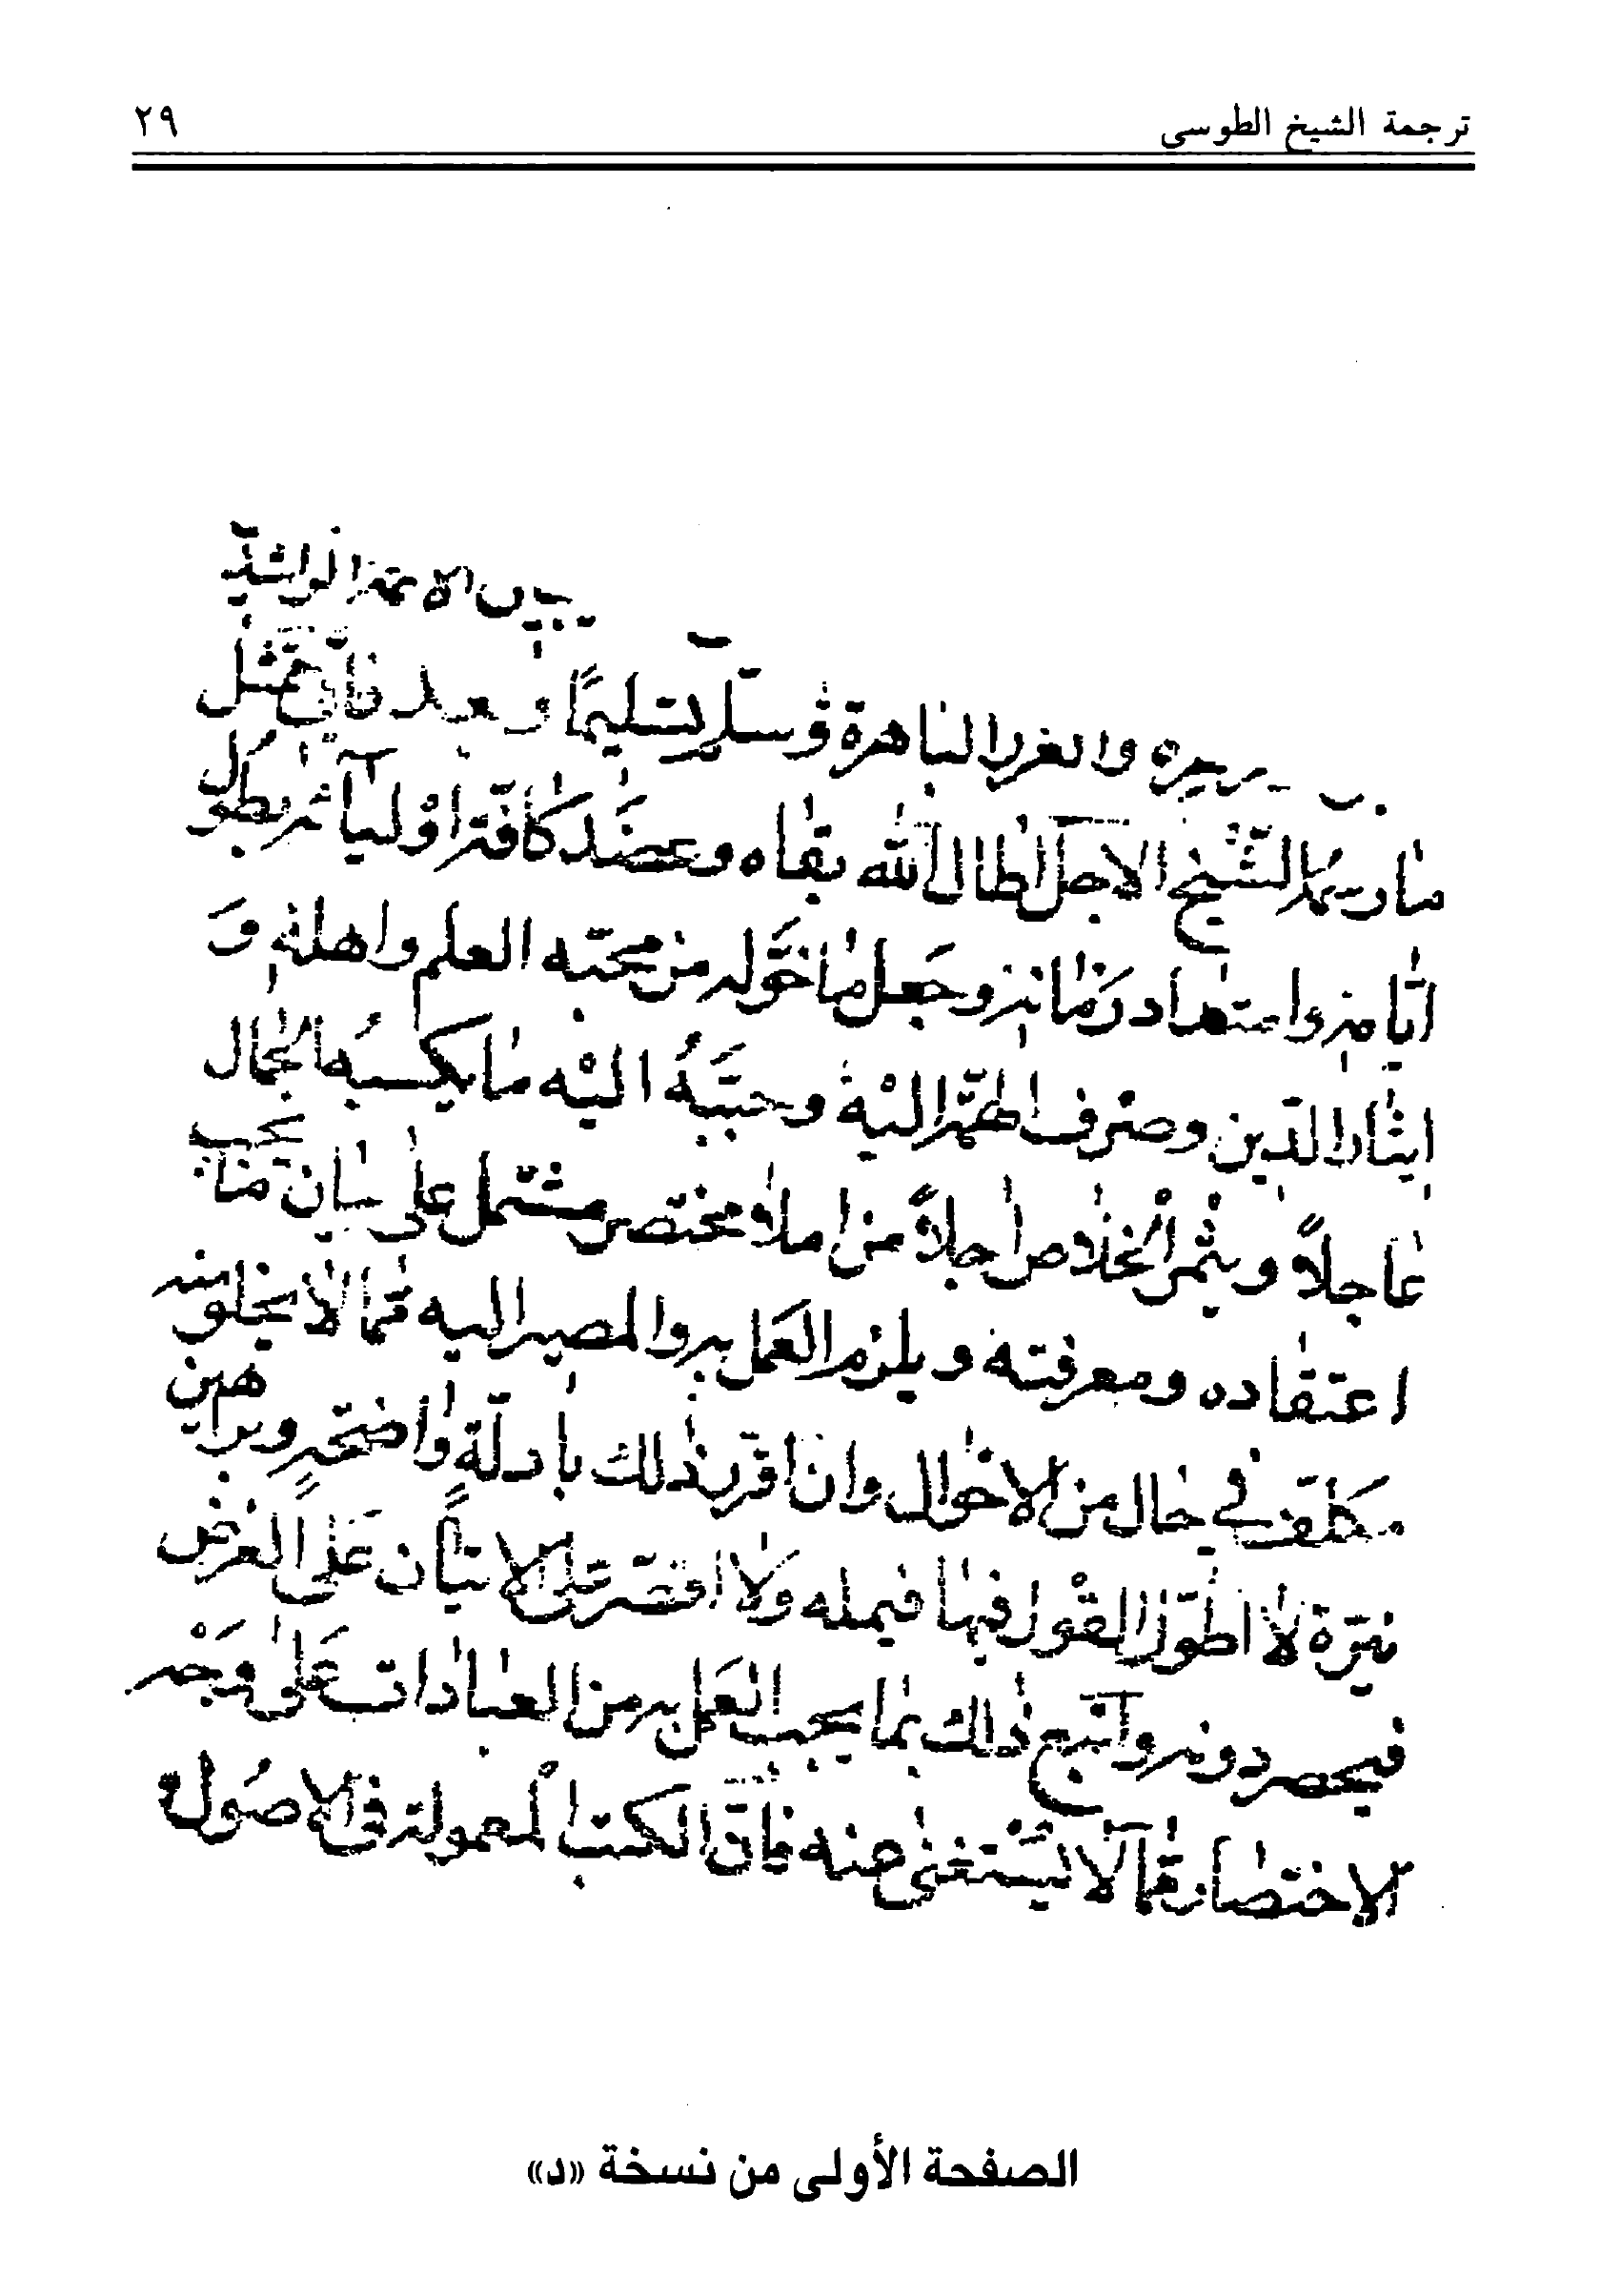 ترجمة الشيخ الطوسي ٢٩
الائمة الراشدين
والغرر الباهرة وسلم تسليمًا وبعد فاني ممتثل
ما رسمه الشّيخ الاجل اطال اللّه بقاه وعضد كافّة اوليآئه بطول
ايّامه وامتداد زمانه وجعل ما خوّله من محبّته العلم واهله وَ
ايثار الدّين وصرف الهمّة اليْه وحبّبهُ اليْه ما يكسبهُ الجمال
عاجلاً ويثمر الخلاص اجلاً من املاء مختصر مشتمل على بيان ما يجب
اعتقاده ومعرفته ويلزم العَمل به والمصير اليه ممّا لا يخلو منه
مكلّف في حال من الاحوال وان اقرن ذلك بادلّة واضحةٍ وبراهين
نيّرة لا اطوّل القول فيها فيمله ولا اقصّر على الاتيان على الغرض
فيحصر دونه واتبع ذلك بما يجب العَمل به من العبادات على وجْه
الاختصار ممّا لا يسْتغنى عنه فانّ الكتب المعمولة في الاصُول
الصفحة الأولى من نسخة «د»